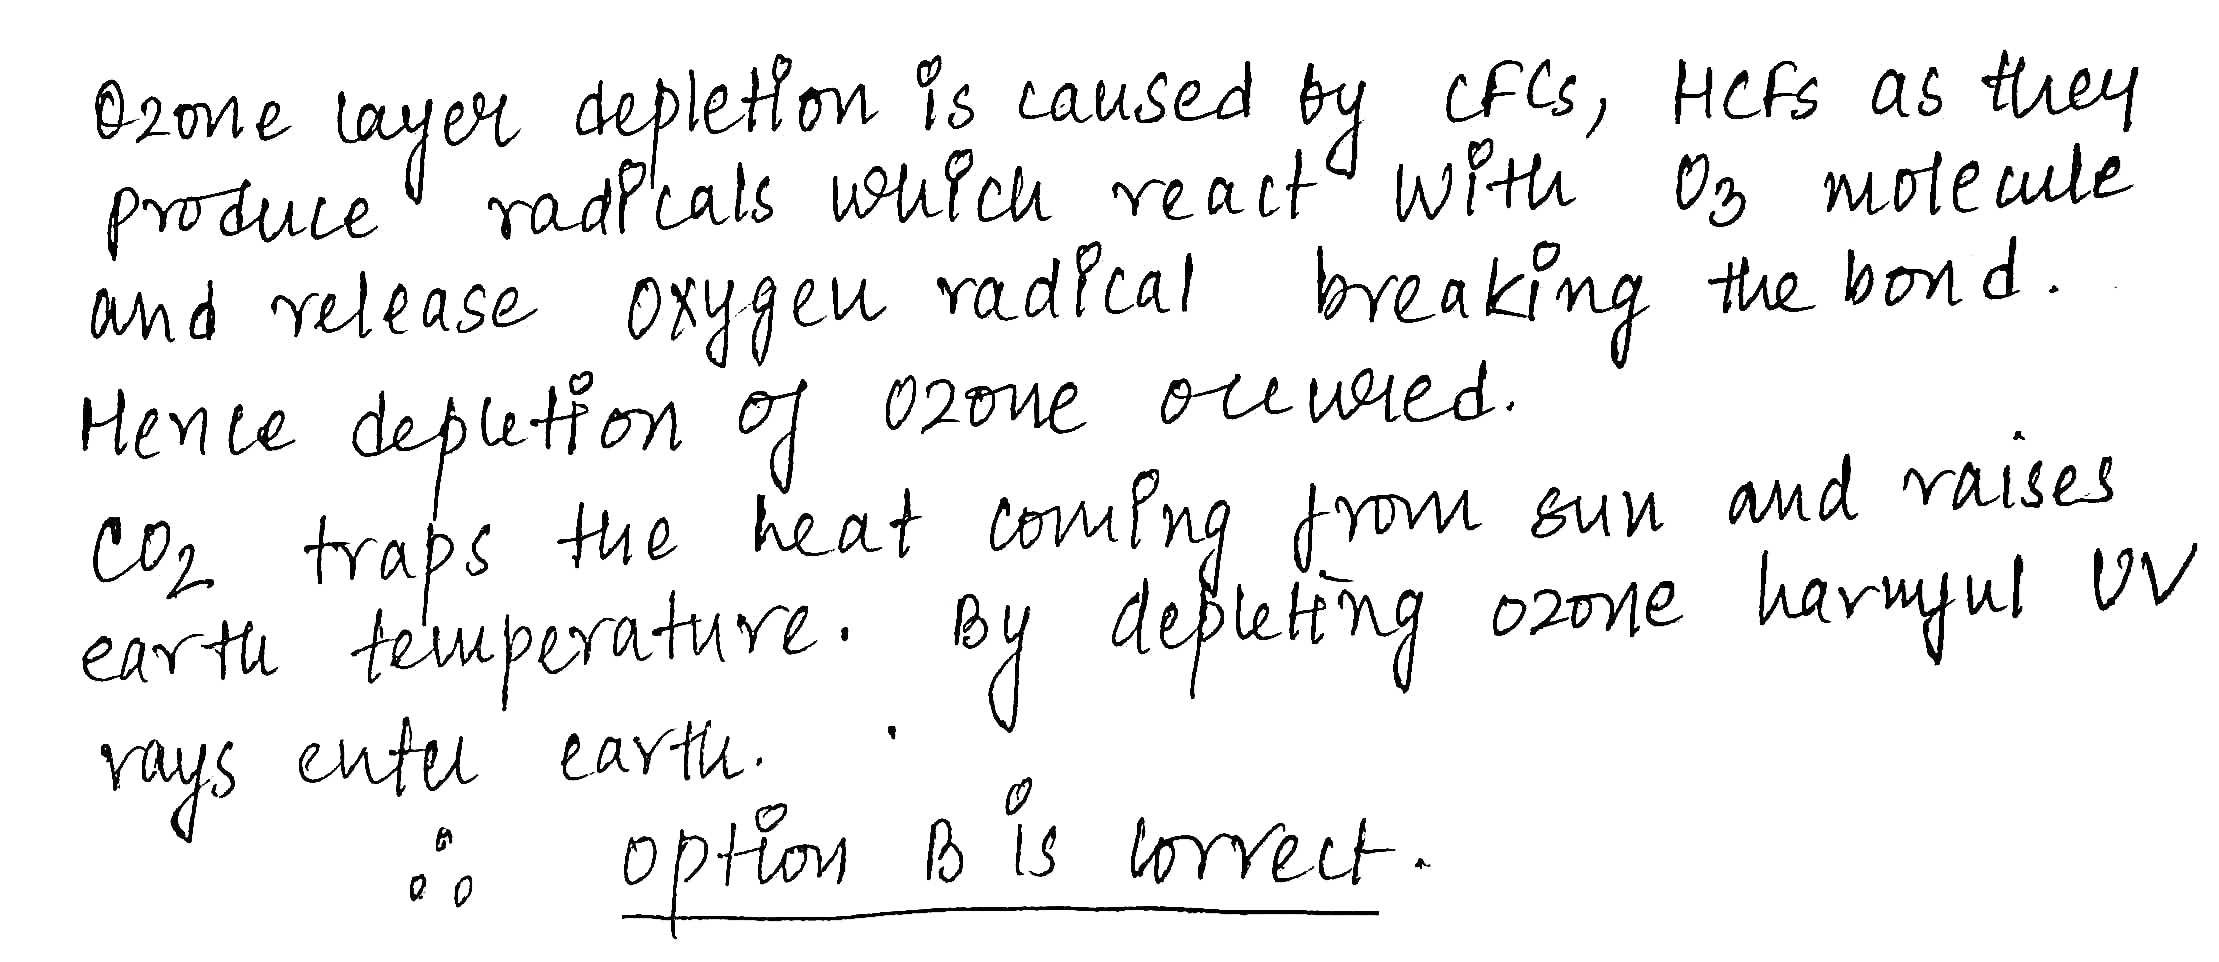 Ozone layer depletion is caused by CFCs, HCFs as they
produce radicals which react with O3 molecule
and release oxygen radical breaking the bond.
Hence depletion of ozone occured.
CO2 traps the heat coming from sun and raises
earth temperature. By depleting ozone harmful UV
rays enter earth.
∴ option B is correct.